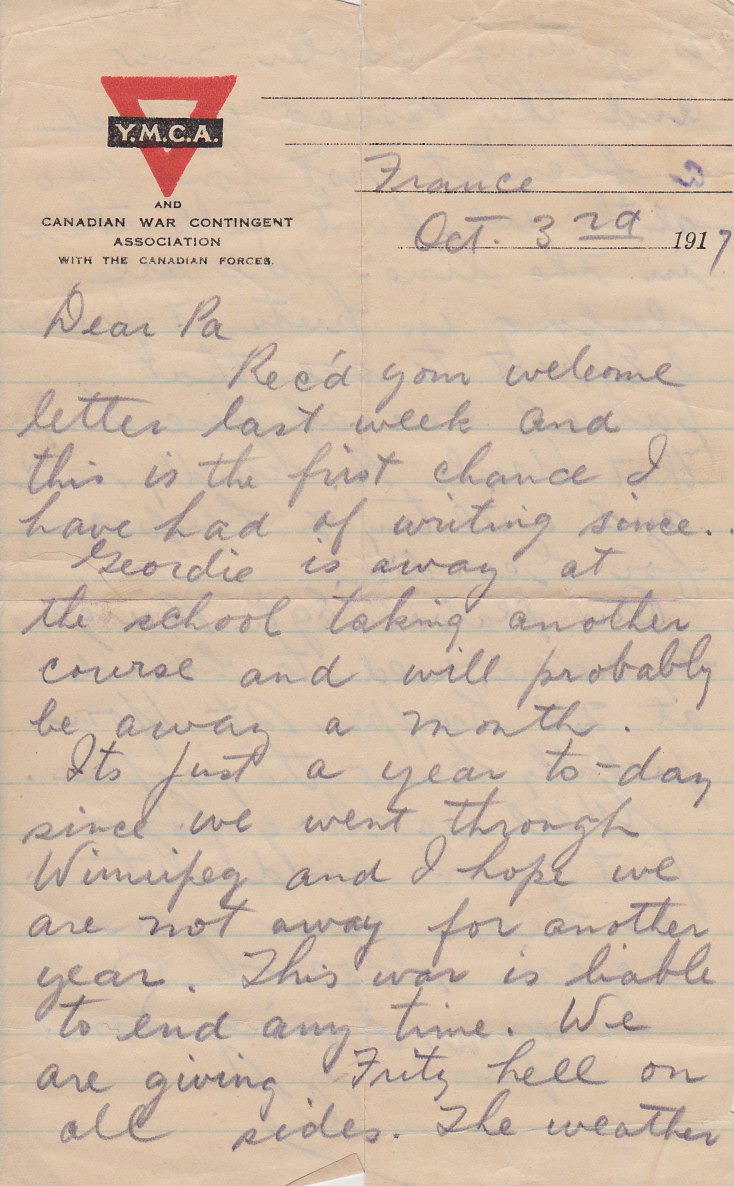 Y.M.C.A.
AND
CANADIAN WAR CONTINGENT
ASSOCIATION
WITH THE CANADIAN FORCES.
France
Oct. 3rd 1917
Dear Pa
Rec'd your welcome
letter last week and
this is the first chance I
have had of writing since.
Geordie is away at
the school taking another
course and will probably
be away a month.
Its just a year to-day
since we went through
Winnipeg and I hope we
are not away for another
year. This war is liable
to end any time. We
are giving Fritz hell on
all sides. The weather